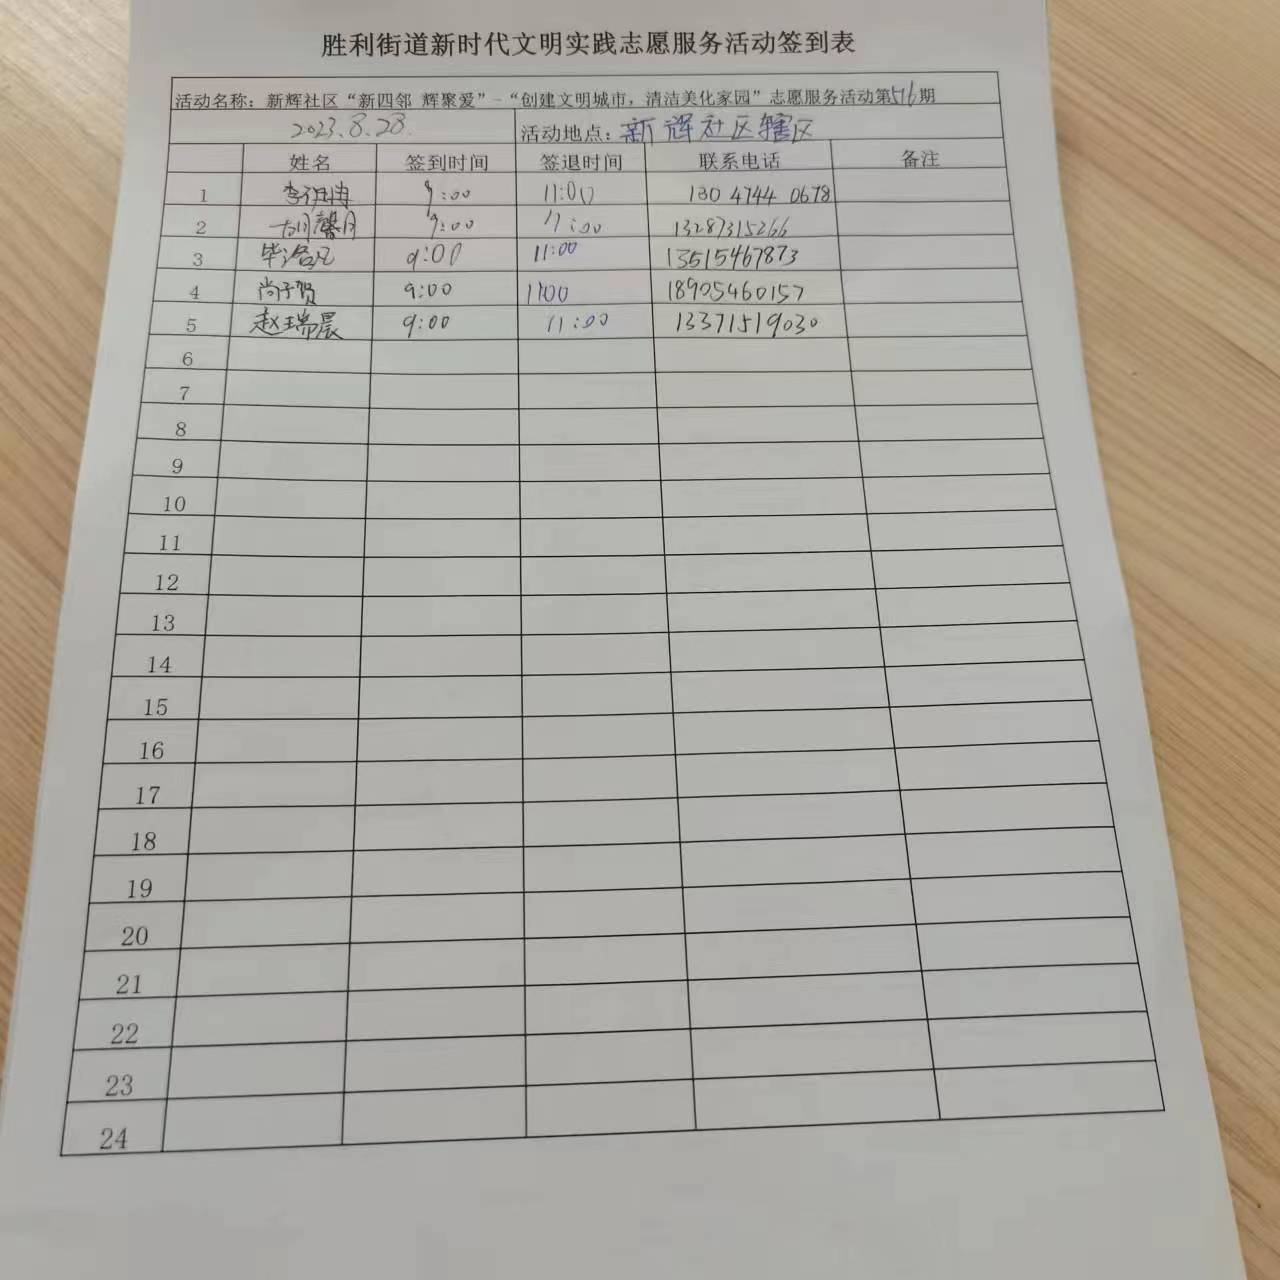 胜利街道新时代文明实践志愿服务活动签到表
活动名称：新辉社区“新四邻 辉聚爱”-“创建文明城市，清洁美化家园”志愿服务活动第516期
2023.8.28. 活动地点：新辉社区辖区
姓名 签到时间 签退时间 联系电话 备注
1 9:00 11:00 130 4744 0678
2 胡馨月 9:00 11:00 13287315266
3 9:00 11:00 13515467873
4 尚子贺 9:00 1100 18905460157
5 赵瑞晨 9:00 11:00 13371519030
6
7
8
9
10
11
12
13
14
15
16
17
18
19
20
21
22
23
24